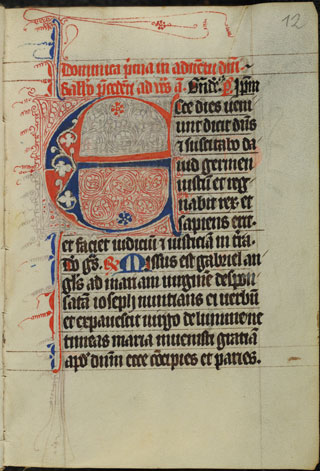 12
Dominica prima in adventu dni
ad
cce dies veni
unt dicit dns
et suscitabo da
vid germen
iustum et reg
nabit rex et
sapiens erit.
et faciet iudicium et iusticiam in tra
Missus est gabriel an
gls ad mariam virginem despon
satam ioseph nuntians ei verbum
et expavescit virgo de lumine ne
timeas maria invenisti gratiam
apd dnm ecce concipies et paries.